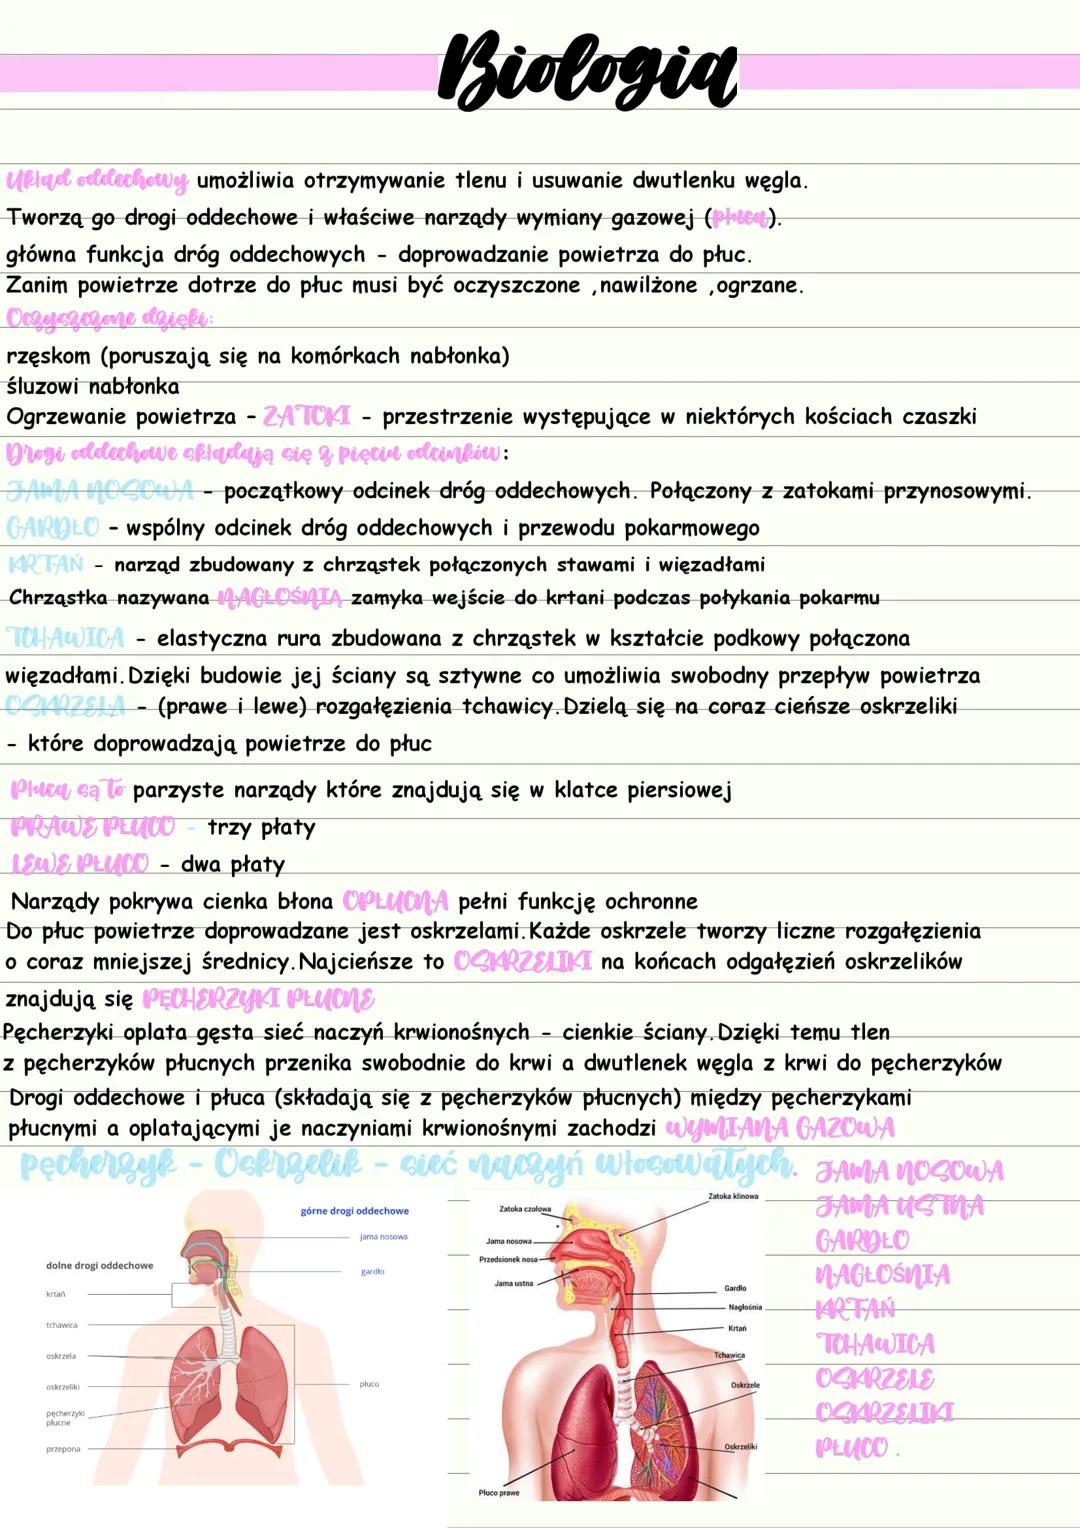 Biologia
Układ oddechowy umożliwia otrzymywanie tlenu i usuwanie dwutlenku węgla.
Tworzą go drogi oddechowe i właściwe narządy wymiany gazowej (płuca).
główna funkcja dróg oddechowych - doprowadzanie powietrza do płuc.
Zanim powietrze dotrze do płuc musi być oczyszczone ,nawilżone ,ogrzane.
Oczyszczone dzięki:
rzęskom (poruszają się na komórkach nabłonka)
śluzowi nabłonka
Ogrzewanie powietrza - ZATOKI - przestrzenie występujące w niektórych kościach czaszki
Drogi oddechowe składają się z pięciu odcinków:
JAMA NOSOWA - początkowy odcinek dróg oddechowych. Połączony z zatokami przynosowymi.
GARDŁO - wspólny odcinek dróg oddechowych i przewodu pokarmowego
KRTAŃ - narząd zbudowany z chrząstek połączonych stawami i więzadłami
Chrząstka nazywana NAGŁOŚNIĄ zamyka wejście do krtani podczas połykania pokarmu
TCHAWICA - elastyczna rura zbudowana z chrząstek w kształcie podkowy połączona
więzadłami.Dzięki budowie jej ściany są sztywne co umożliwia swobodny przepływ powietrza
OSKRZELA - (prawe i lewe) rozgałęzienia tchawicy.Dzielą się na coraz cieńsze oskrzeliki
- które doprowadzają powietrze do płuc
Płuca są to parzyste narządy które znajdują się w klatce piersiowej
PRAWE PŁUCO - trzy płaty
LEWE PŁUCO - dwa płaty
Narządy pokrywa cienka błona OPŁUCNA pełni funkcję ochronne
Do płuc powietrze doprowadzane jest oskrzelami.Każde oskrzele tworzy liczne rozgałęzienia
o coraz mniejszej średnicy.Najcieńsze to OSKRZELIKI na końcach odgałęzień oskrzelików
znajdują się PĘCHERZYKI PŁUCNE
Pęcherzyki oplata gęsta sieć naczyń krwionośnych - cienkie ściany.Dzięki temu tlen
z pęcherzyków płucnych przenika swobodnie do krwi a dwutlenek węgla z krwi do pęcherzyków
Drogi oddechowe i płuca (składają się z pęcherzyków płucnych) między pęcherzykami
płucnymi a oplatającymi je naczyniami krwionośnymi zachodzi WYMIANA GAZOWA
pęcherzyk - Oskrzelik - sieć naczyń włosowatych.
górne drogi oddechowe
jama nosowa
gardło
dolne drogi oddechowe
krtań
tchawica
oskrzela
oskrzeliki
pęcherzyki
płucne
przepona
płuco
Zatoka czołowa
Zatoka klinowa
Jama nosowa
Przedsionek nosa
Jama ustna
Gardło
Nagłośnia
Krtań
Tchawica
Oskrzele
Oskrzeliki
Płuco prawe
JAMA NOSOWA
JAMA USTNA
GARDŁO
NAGŁOŚNIA
KRTAŃ
TCHAWICA
OSKRZELE
OSKRZELIKI
PŁUCO .